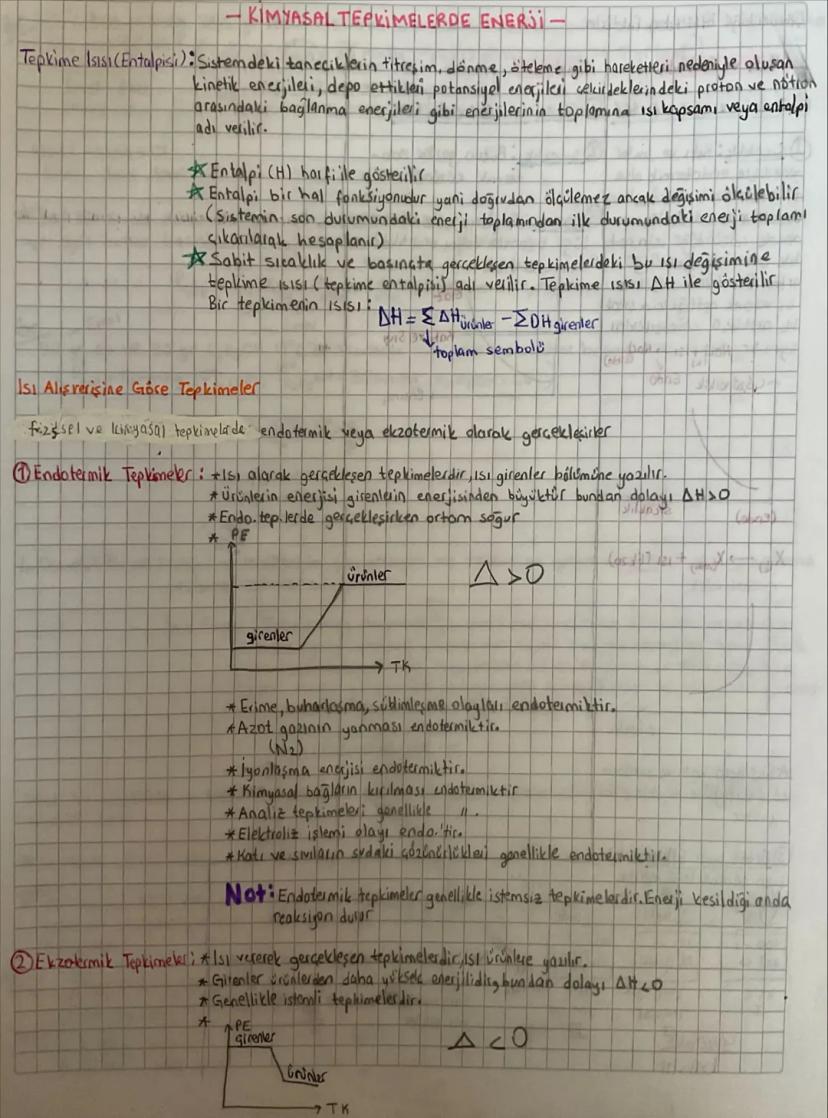 - KİMYASAL TEPKİMELERDE ENERJİ -
Tepkime Isısı (Entalpisi): Sistemdeki taneciklerin titreşim, dönme, öteleme gibi hareketleri nedeniyle oluşan
kinetik enerjileri, depo ettikleri potansiyel enerjileri çekirdeklerindeki proton ve nötron
arasındaki bağlanma enerjileri gibi enerjilerinin toplamına ısı kapsamı veya entalpi
adı verilir.
☆ Entalpi (H) harfi ile gösterilir
☆ Entalpi bir hal fonksiyonudur yani doğrudan ölçülemez ancak değişimi ölçülebilir
(Sistemin son durumundaki enerji toplamından ilk durumundaki enerji toplamı
çıkarılarak hesaplanır)
☆ Sabit sıcaklık ve basınçta gerçekleşen tepkimelerdeki bu ısı değişimine
tepkime ısısı (tepkime entalpisi) adı verilir. Tepkime ısısı ΔH ile gösterilir
Bir tepkimenin ısısı:
ΔH = ΣΔHürünler - ΣDHgirenler
toplam sembolü
Isı Alışverişine Göre Tepkimeler
fiziksel ve kimyasal tepkimelerde endotermik veya ekzotermik olarak gerçekleşirler
① Endotermik Tepkimeler: *Isı alarak gerçekleşen tepkimelerdir, ısı girenler bölümüne yazılır.
*Ürünlerin enerjisi girenlerin enerjisinden büyüktür bundan dolayı ΔH>0
*Endo. tep.lerde gerçekleşirken ortam soğur
* PE
ürünler
Δ >0
girenler
TK
*Erime, buharlaşma, süblimleşme olayları endotermiktir.
*Azot gazının yanması endotermiktir.
(N2)
*İyonlaşma enerjisi endotermiktir.
*Kimyasal bağların kırılması endotermiktir
*Analiz tepkimeleri genellikle ".
*Elektroliz işlemi olayı endo.'tir.
*Katı ve sıvıların sudaki çözünürlükleri genellikle endotermiktir.
Not: Endotermik tepkimeler genellikle istemsiz tepkimelerdir. Enerji kesildiği anda
reaksiyon durur
② Ekzotermik Tepkimeler: *Isı vererek gerçekleşen tepkimelerdir, ısı ürünlere yazılır.
*Girenler ürünlerden daha yüksek enerjilidir, bundan dolayı ΔH<0
*Genellikle istemli tepkimelerdir.
*
PE
Girenler
Δ <0
Ürünler
TK